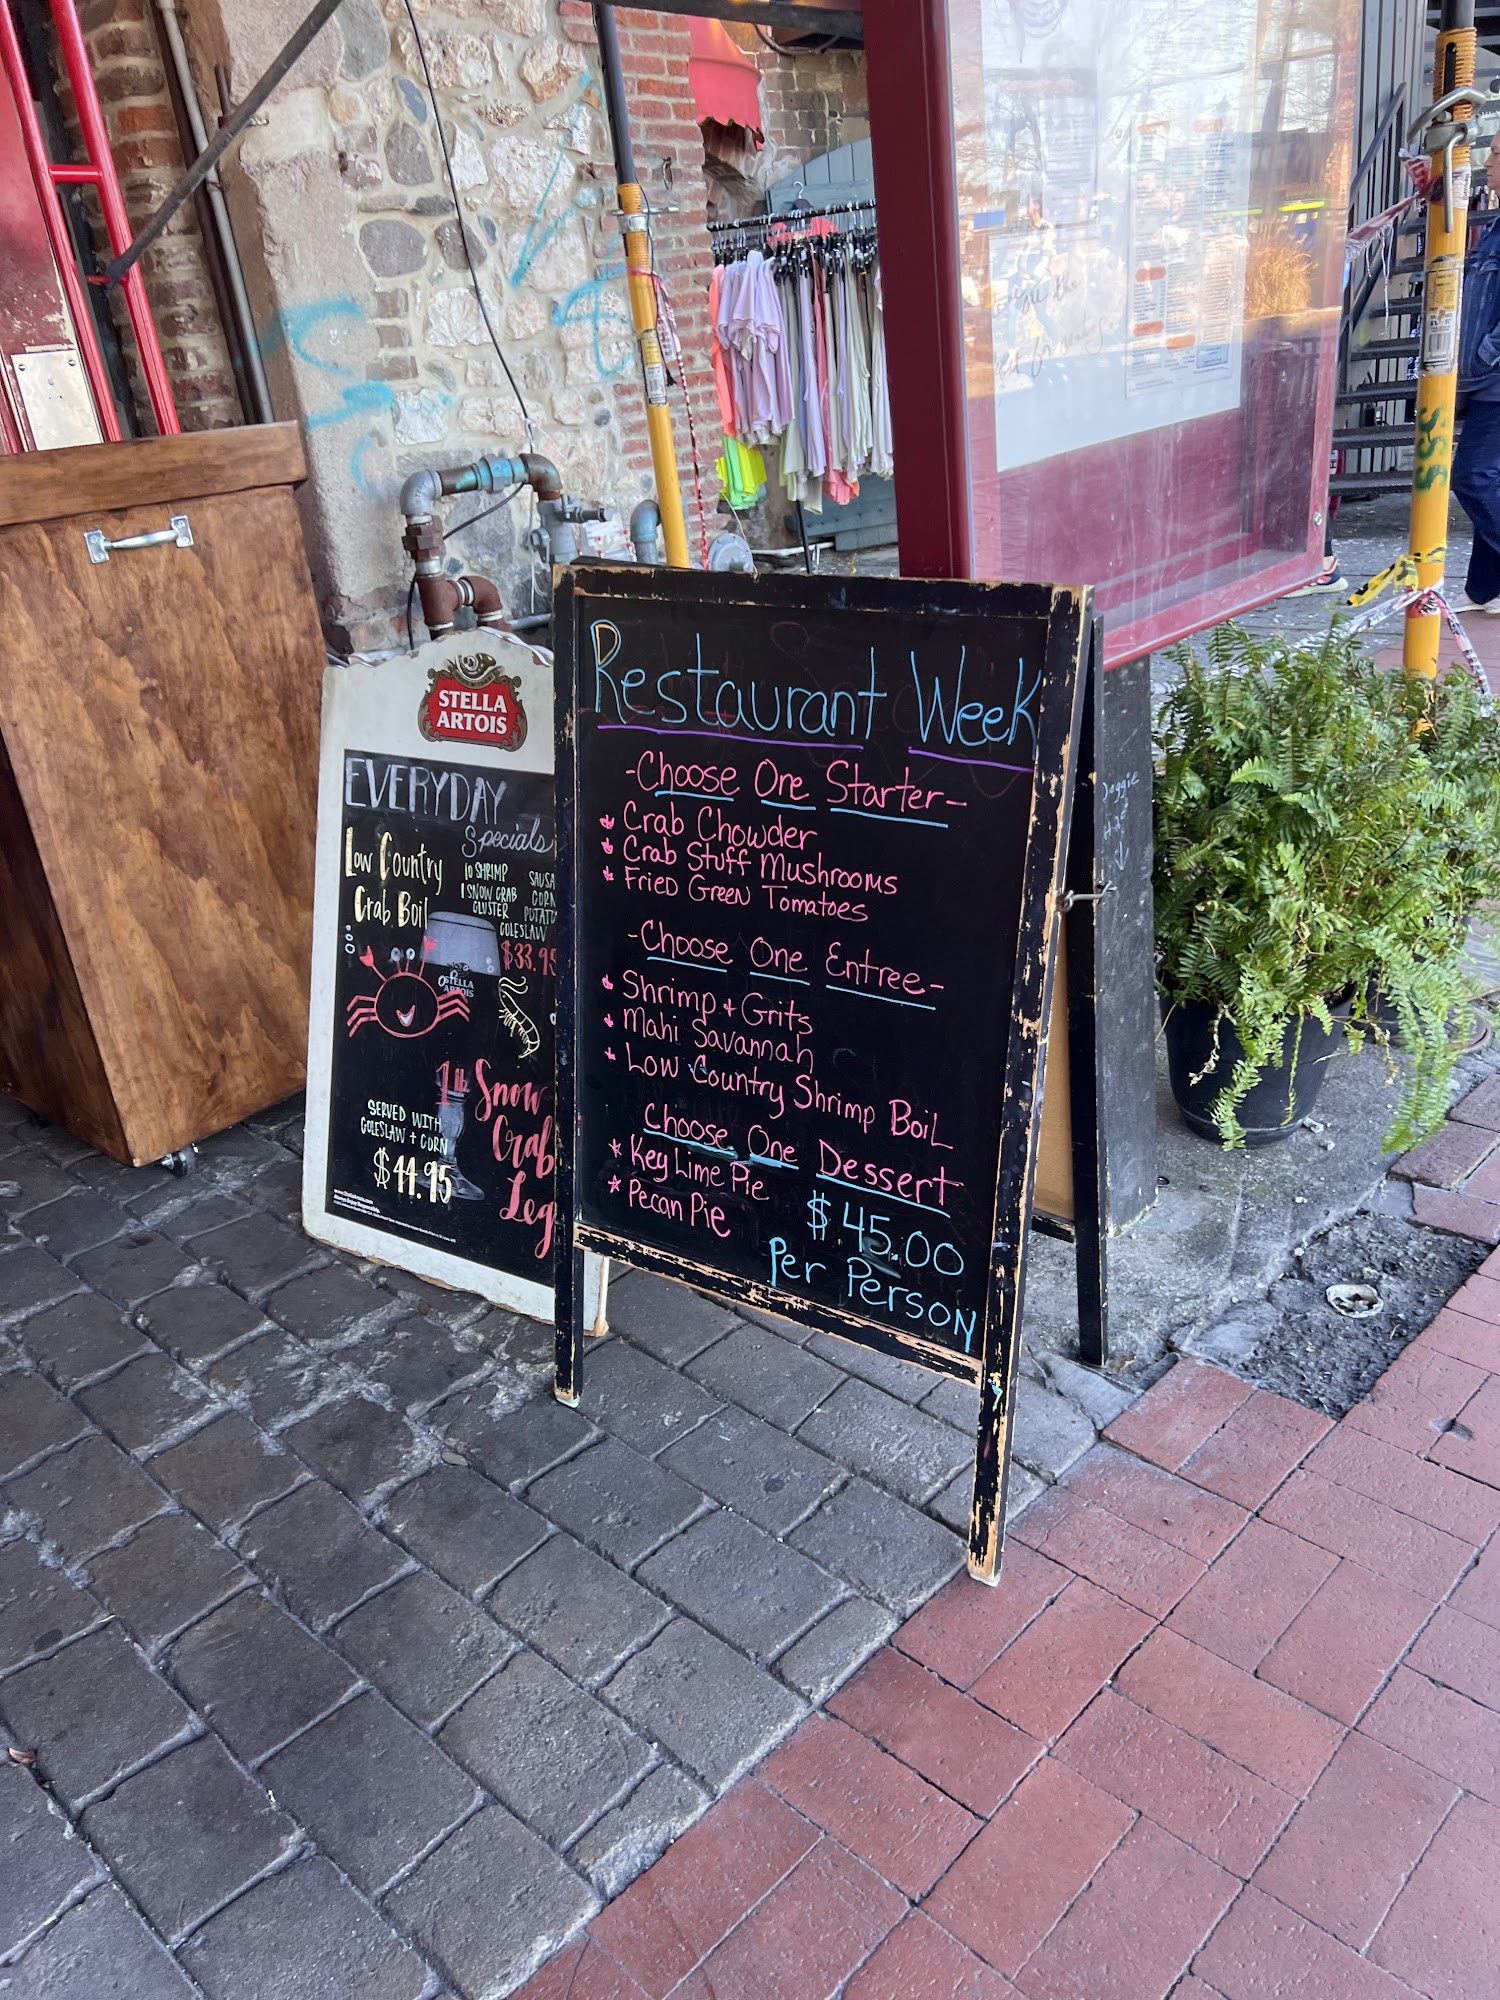 Restaurant Week
-Choose One Starter-
Crab Chowder
Crab Stuff Mushrooms
Fried Green Tomatoes
-Choose One Entree-
Shrimp + Grits
Mahi Savannah
Low Country Shrimp Boil
Choose One Dessert
* Key Lime Pie
* Pecan Pie
$45.00
Per Person
STELLA
ARTOIS
EVERYDAY
Specials
Low Country
Crab Boil
10 SHRIMP
1 SNOW CRAB
CLUSTER
SAUSA
CORN
POTATO
COLESLAW
$33.95
STELLA
ARTOIS
1 lb Snow
Crab
Leg
SERVED WITH
COLESLAW + CORN
$44.95
SSS